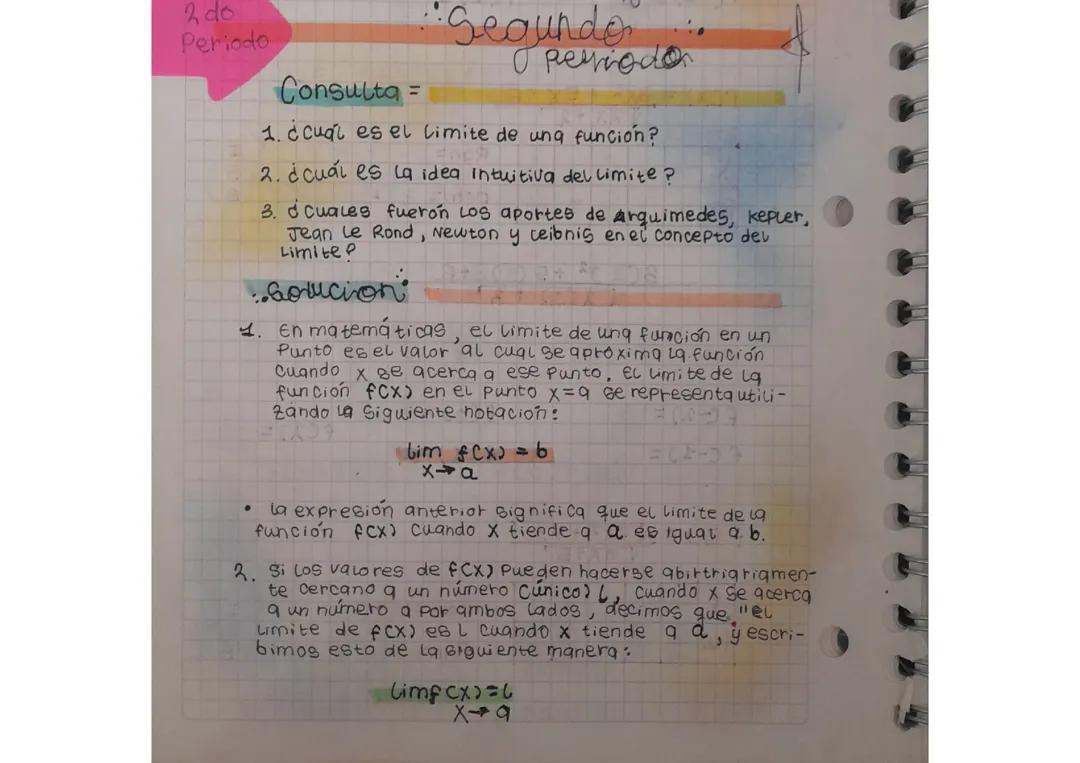 2 do
Periodo
Segundo
periodo
Consulta =
1. ¿cuál es el limite de una función?
2. ¿cuál es la idea intuitiva del limite?
3. ¿cuales fuerón los aportes de Arquimedes, kepler,
Jean le Rond, Newton y leibnis en el concepto del
Limite?
Solucion:
1. En matemáticas, el limite de una función en un
Punto es el valor al cual se apróxima la función
cuando x se acerca a ese punto. El limite de la
función f(x) en el punto x=a se representa utili-
zándo la siguiente notación:
lim f(x) = b
x→a
• la expresión anterior significa que el limite de la
función f(x) cuando x tiende a a es igual a b.
2. Si los valores de f(x) pueden hacerse abirtriariamen-
te cercano a un número (único) L, cuando x se acerca
a un número a por ambos lados, decimos que "el
limite de f(x) es L cuando x tiende a a, y escri-
bimos esto de la siguiente manera:
limf(x)=L
x→a